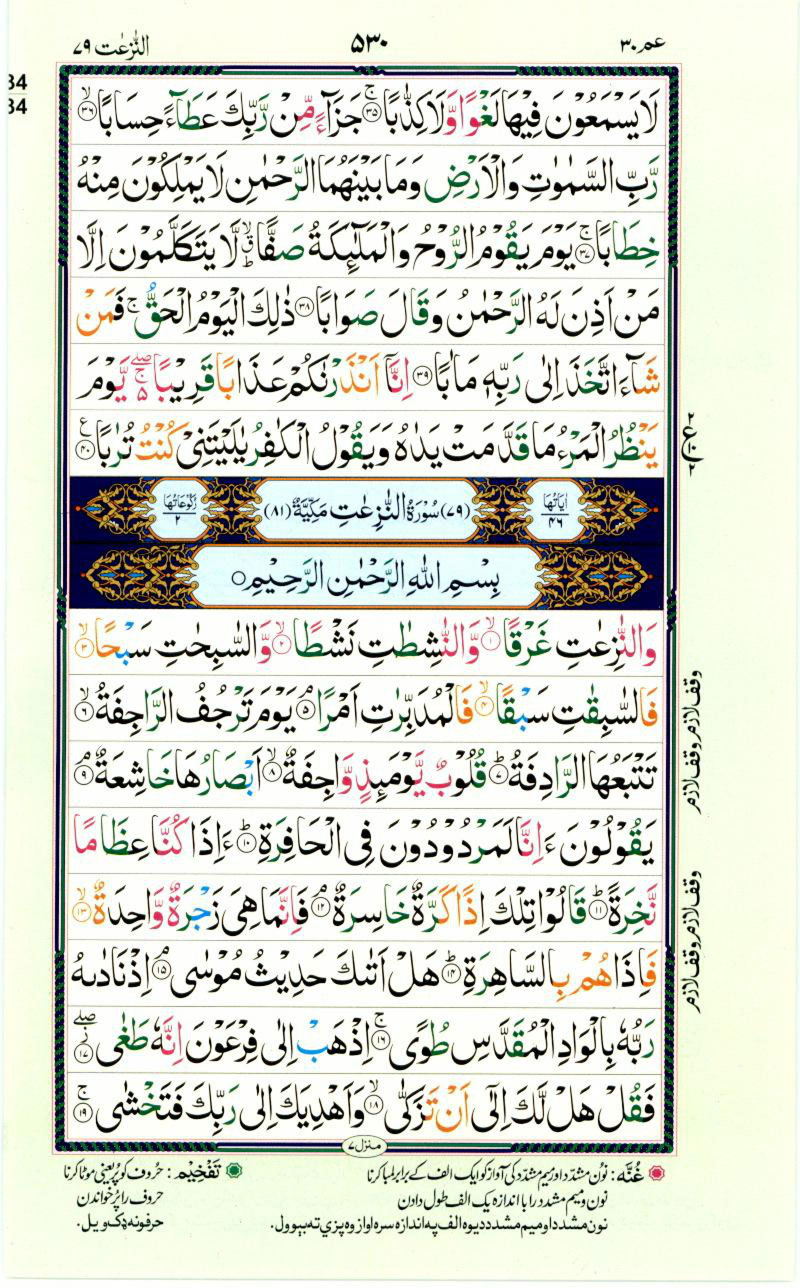 عم ٣٠
٥٣٠
النّٰزعٰت ٧٩
34
34
لَا يَسْمَعُوْنَ فِيْهَا لَغْوًا وَّلَا كِذّٰبًا ۚ‏﴿٣٥﴾ جَزَآءً مِّنْ رَّبِّكَ عَطَآءً حِسَابًا ۙ‏﴿٣٦﴾
رَّبِّ السَّمٰوٰتِ وَالْاَرْضِ وَمَا بَيْنَهُمَا الرَّحْمٰنِ لَا يَمْلِكُوْنَ مِنْهُ
خِطَابًا ۚ‏﴿٣٧﴾ يَوْمَ يَقُوْمُ الرُّوْحُ وَالْمَلٰٓئِكَةُ صَفًّا ۙۗ لَّا يَتَكَلَّمُوْنَ اِلَّا
مَنْ اَذِنَ لَهُ الرَّحْمٰنُ وَقَالَ صَوَابًا ‏﴿٣٨﴾ ذٰلِكَ الْيَوْمُ الْحَقُّ ۚ فَمَنْ
شَآءَ اتَّخَذَ اِلٰى رَبِّهٖ مَاٰبًا ‏﴿٣٩﴾ اِنَّاۤ اَنْذَرْنٰكُمْ عَذَابًا قَرِيْبًا ۖۚ۵ يَّوْمَ
يَنْظُرُ الْمَرْءُ مَا قَدَّمَتْ يَدٰهُ وَيَقُوْلُ الْكٰفِرُ يٰلَيْتَنِيْ كُنْتُ تُرٰبًا ﴿٤٠﴾
اٰيَاتُهَا ٤٦
(٧٩) سُوْرَةُ النّٰزِعٰتِ مَكِّيَّةٌ (٨١)
رُكُوْعَاتُهَا ٢
بِسْمِ اللّٰهِ الرَّحْمٰنِ الرَّحِيْمِ ○
وَالنّٰزِعٰتِ غَرْقًا ۙ‏﴿١﴾ وَّالنّٰشِطٰتِ نَشْطًا ۙ‏﴿٢﴾ وَّالسّٰبِحٰتِ سَبْحًا ۙ‏﴿٣﴾
فَالسّٰبِقٰتِ سَبْقًا ۙ‏﴿٤﴾ فَالْمُدَبِّرٰتِ اَمْرًا ۘ‏﴿٥﴾ يَوْمَ تَرْجُفُ الرَّاجِفَةُ ۙ‏﴿٦﴾
تَتْبَعُهَا الرَّادِفَةُ ؕ‏﴿٧﴾ قُلُوْبٌ يَّوْمَئِذٍ وَّاجِفَةٌ ۙ‏﴿٨﴾ اَبْصَارُهَا خَاشِعَةٌ ۘ‏﴿٩﴾
يَقُوْلُوْنَ ءَاِنَّا لَمَرْدُوْدُوْنَ فِى الْحَافِرَةِ ؕ‏﴿١٠﴾ ءَاِذَا كُنَّا عِظَامًا
نَّخِرَةً ؕ‏﴿١١﴾ قَالُوْا تِلْكَ اِذًا كَرَّةٌ خَاسِرَةٌ ۘ‏﴿١٢﴾ فَاِنَّمَا هِىَ زَجْرَةٌ وَّاحِدَةٌ ۙ‏﴿١٣﴾
فَاِذَا هُمْ بِالسَّاهِرَةِ ؕ‏﴿١٤﴾ هَلْ اَتٰىكَ حَدِيْثُ مُوْسٰى ۘ‏﴿١٥﴾ اِذْ نَادٰىهُ
رَبُّهٗ بِالْوَادِ الْمُقَدَّسِ طُوًى ۚ‏﴿١٦﴾ اِذْهَبْ اِلٰى فِرْعَوْنَ اِنَّهٗ طَغٰى ۖ‏﴿١٧﴾
فَقُلْ هَلْ لَّكَ اِلٰٓى اَنْ تَزَكّٰى ۙ‏﴿١٨﴾ وَاَهْدِيَكَ اِلٰى رَبِّكَ فَتَخْشٰى ۚ‏﴿١٩﴾
وقف لازم وقف لازم
وقف لازم وقف لازم
منزل ٧
غُنّه : نُون مشدّد اور میم مشدّد کی آواز کو ایک الف کے برابر لمبا کرنا
نون و میم مشدد را با اندازه یک الف طول دادن
نون مشدد او میم مشدد دیوه الف په اندازه سره اواز وه پزي ته بېوول.
تَفْخِيْم : حُروف کو پُر یعنی موٹا کرنا
حروف را پُر خواندن
حرفونه ډک ویل.